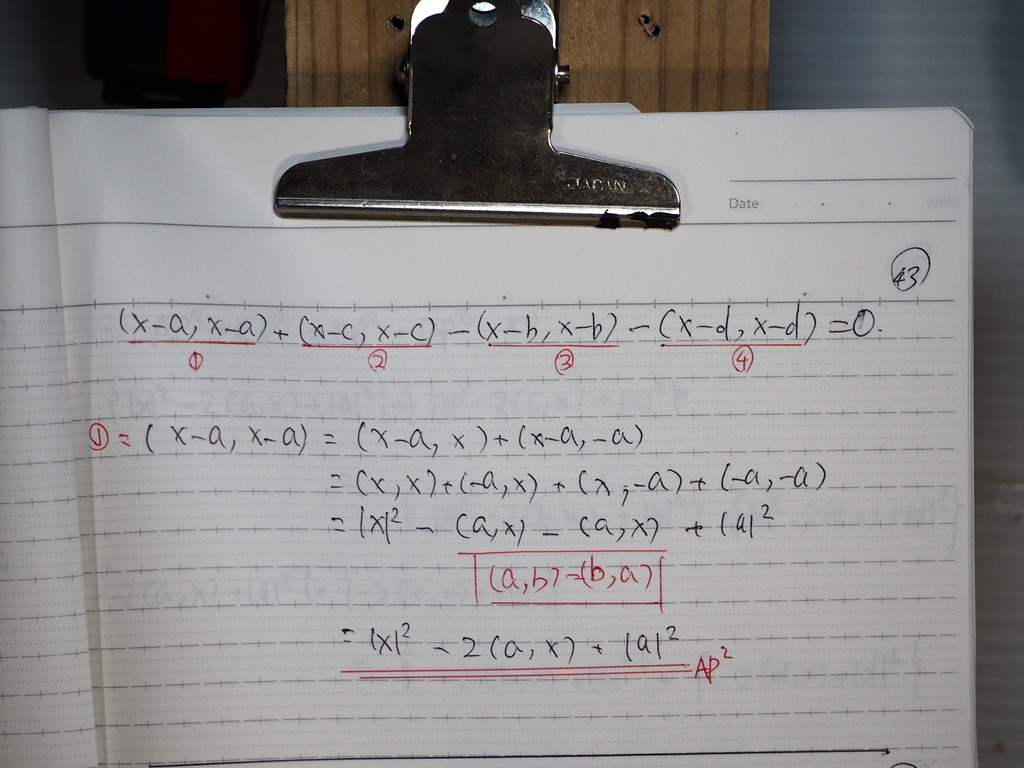 JAPAN
Date
43
(x-a, x-a) + (x-c, x-c) - (x-b, x-b) - (x-d, x-d) = 0.
① ② ③ ④
① = (x-a, x-a) = (x-a, x) + (x-a, -a)
= (x, x) + (-a, x) + (x, -a) + (-a, -a)
= |x|² - (a, x) - (a, x) + |a|²
(a, b) = (b, a)
= |x|² - 2(a, x) + |a|²
AP²